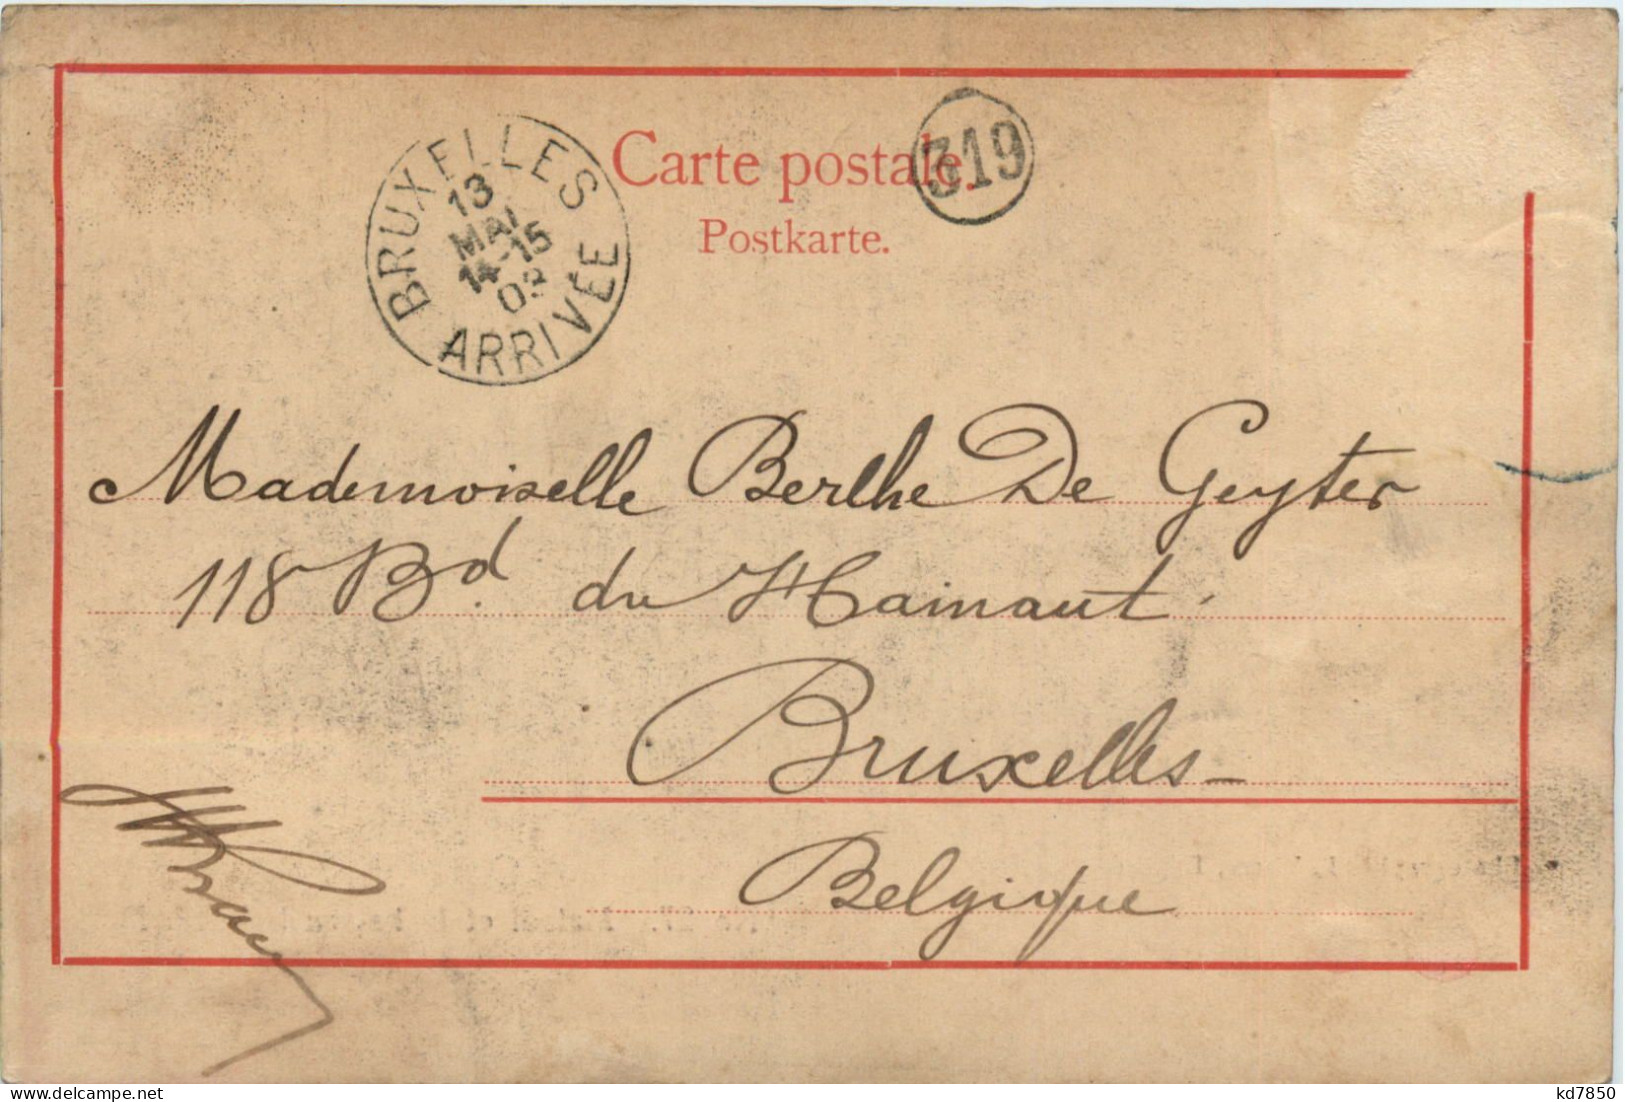 Carte postale.
319
Postkarte.
BRUXELLES
13
MAI
14-15
03
ARRIVÉE
Mademoiselle Berthe De Geyter
118 Bd. du Hainaut.
Bruxelles-
Belgique
www.delcampe.net
kd7850